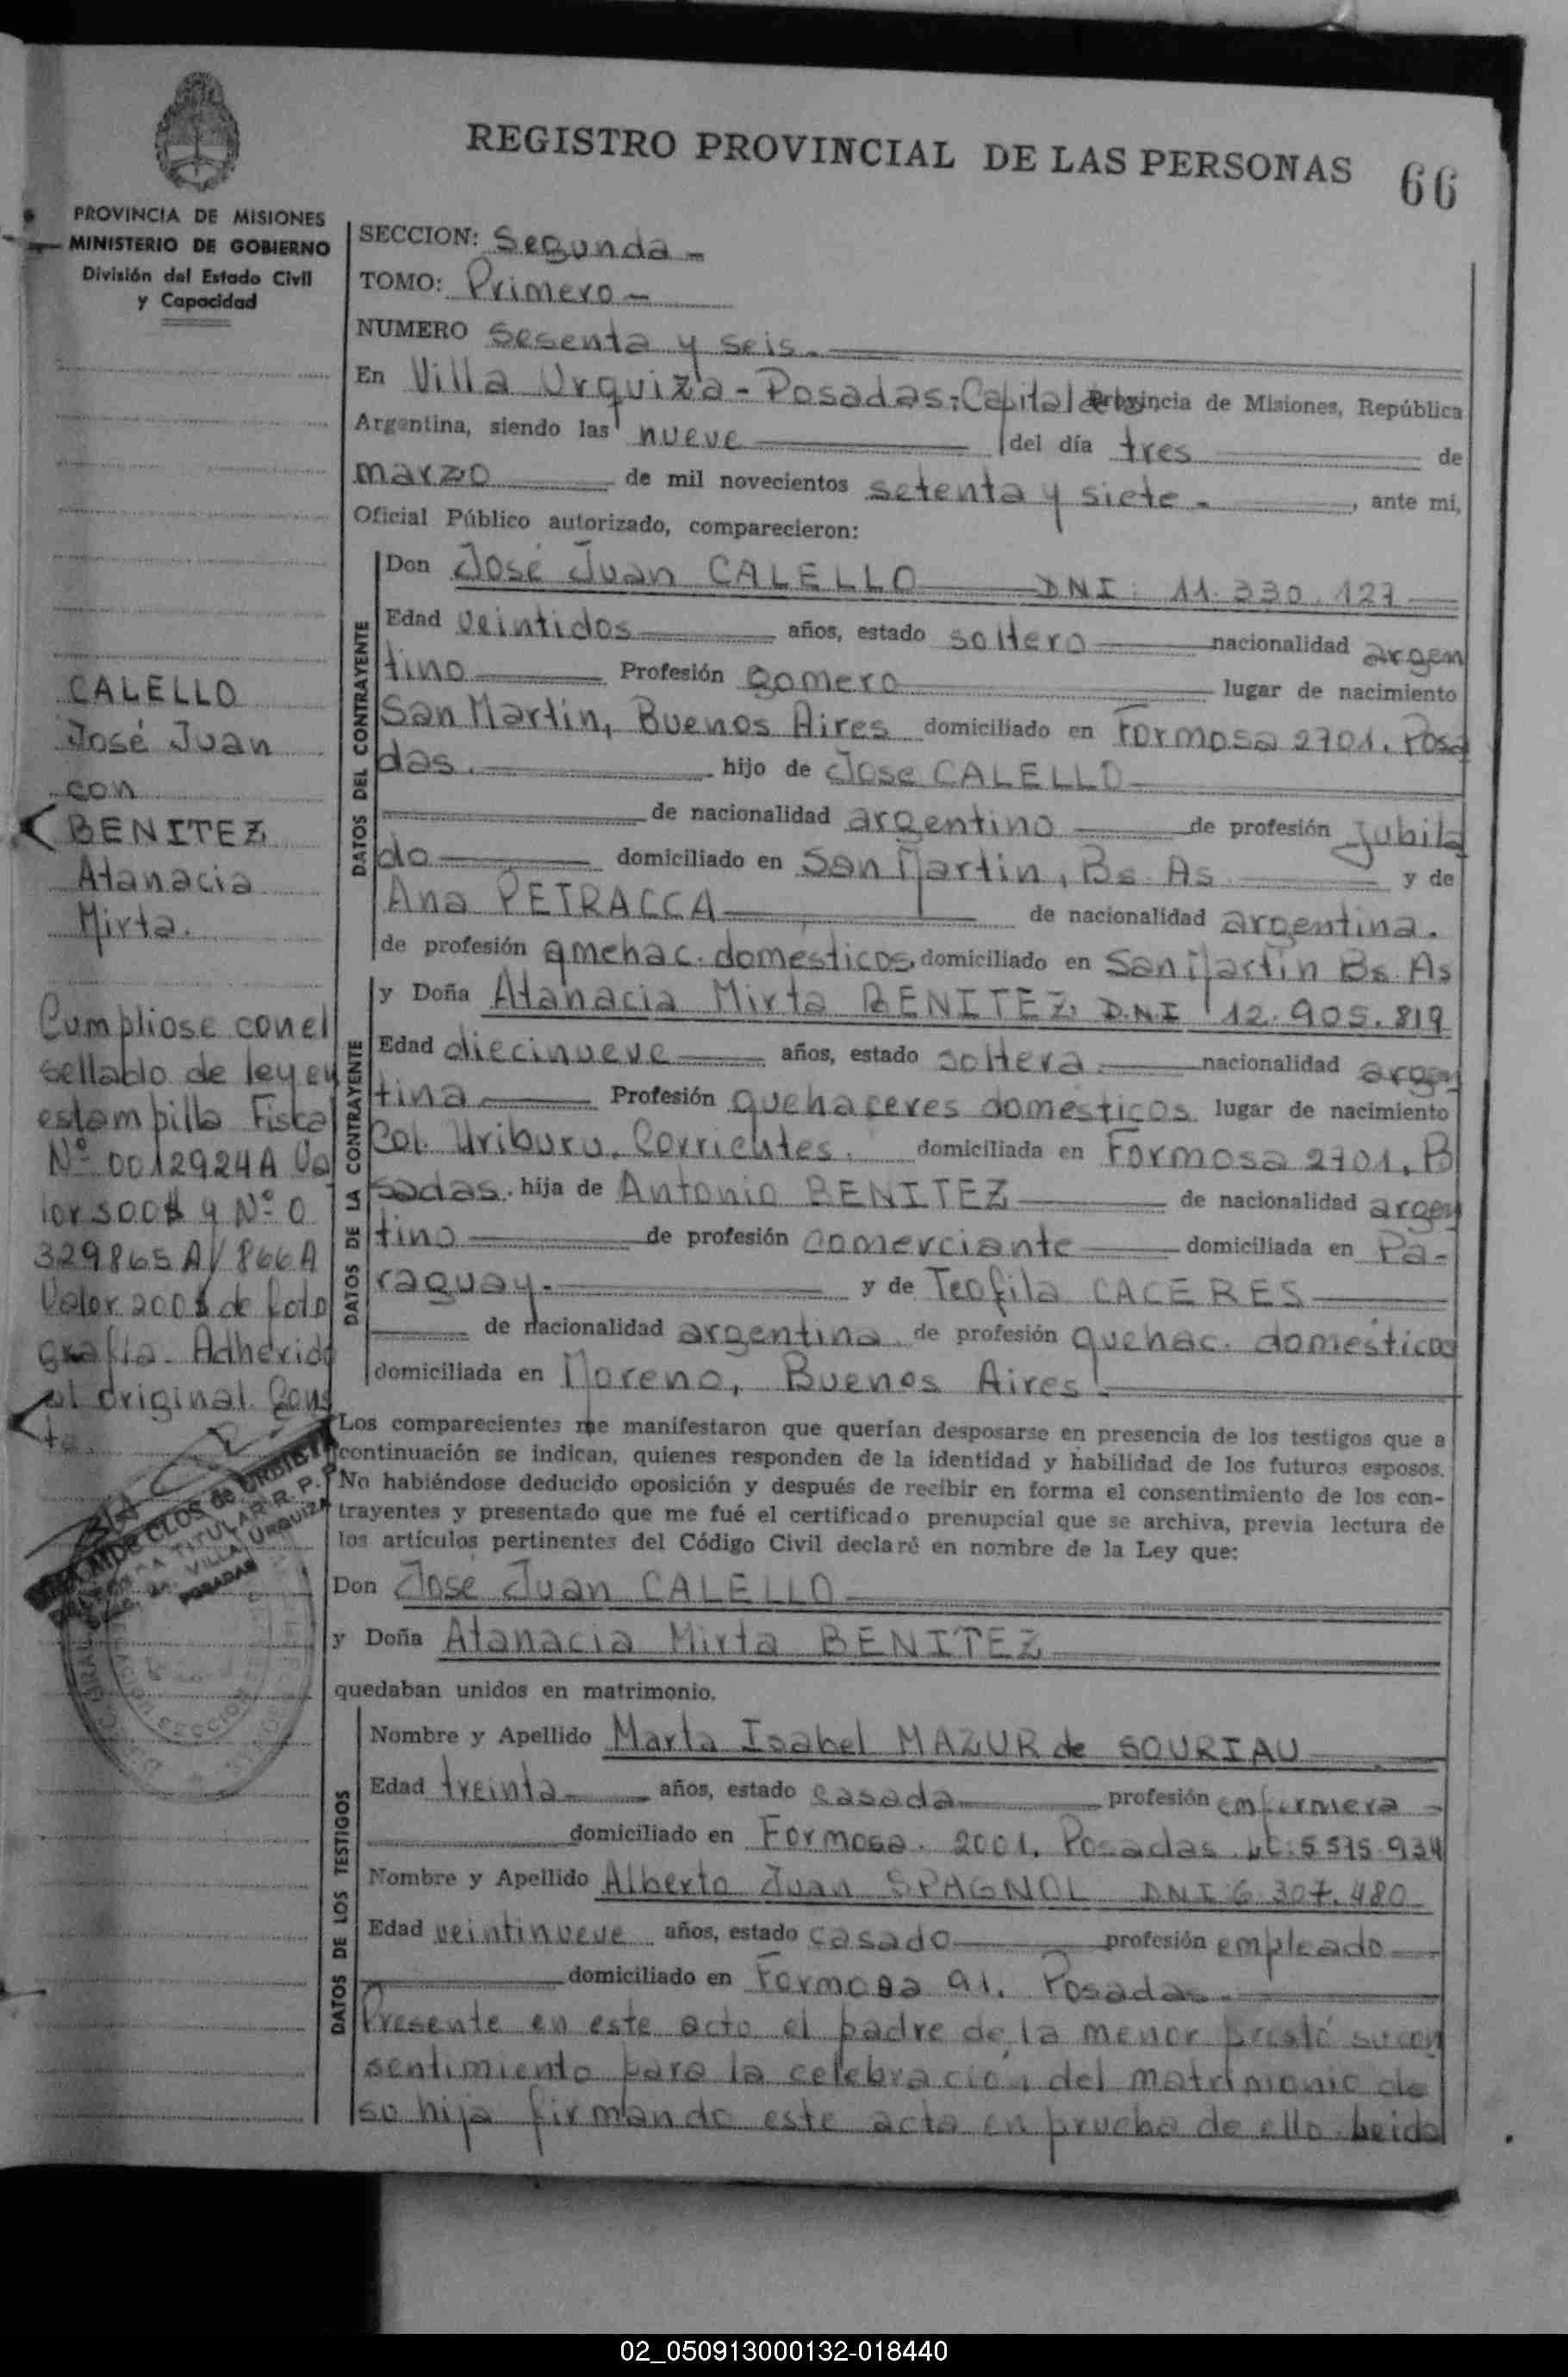 REGISTRO PROVINCIAL DE LAS PERSONAS 66
PROVINCIA DE MISIONES
MINISTERIO DE GOBIERNO
División del Estado Civil
y Capacidad
CALELLO
José Juan
con
BENITEZ
Atanacia
Mirta.
Cumpliose con el
sellado de ley en
estampilla Fiscal
Nº 0012924A Va
lor 500$ y Nº 0
329865A/866A
Valor 200$ de foto
grafia. Adherido
al original. Cons
te.
CLOS de
TITULAR R. P. P.
VILLA URQUIZA
POSADAS
SECCION: Segunda -
TOMO: Primero -
NUMERO Sesenta y seis.
En Villa Urquiza - Posadas; Capital de la Provincia de Misiones, República
Argentina, siendo las nueve del día tres de
marzo de mil novecientos setenta y siete. , ante mi,
Oficial Público autorizado, comparecieron:
DATOS DEL CONTRAYENTE
Don José Juan CALELLO DNI: 11.330.127
Edad veintidos años, estado soltero nacionalidad argen
tino Profesión gomero lugar de nacimiento
San Martin, Buenos Aires domiciliado en Formosa 2701. Posa
das. hijo de Jose CALELLO
de nacionalidad argentino de profesión jubila
do domiciliado en San Martin, Bs. As. y de
Ana PETRACCA de nacionalidad argentina.
de profesión quehac. domesticos domiciliado en San Martin Bs. As
DATOS DE LA CONTRAYENTE
y Doña Atanacia Mirta BENITEZ, D.N.I 12.905.819
Edad diecinueve años, estado soltera nacionalidad argen
tina Profesión quehaceres domesticos lugar de nacimiento
Col. Uriburu, Corrientes. domiciliada en Formosa 2701, Po
sadas. hija de Antonio BENITEZ de nacionalidad argen
tino de profesión comerciante domiciliada en Pa-
raguay. y de Teofila CACERES
de nacionalidad argentina de profesión quehac. domésticos
domiciliada en Moreno, Buenos Aires.
Los comparecientes me manifestaron que querían desposarse en presencia de los testigos que a
continuación se indican, quienes responden de la identidad y habilidad de los futuros esposos.
No habiéndose deducido oposición y después de recibir en forma el consentimiento de los con-
trayentes y presentado que me fué el certificado prenupcial que se archiva, previa lectura de
los artículos pertinentes del Código Civil declaré en nombre de la Ley que:
Don José Juan CALELLO
y Doña Atanacia Mirta BENITEZ
quedaban unidos en matrimonio.
DATOS DE LOS TESTIGOS
Nombre y Apellido Marta Isabel MAZUR de SOURIAU
Edad treinta años, estado casada profesión enfermera -
domiciliado en Formosa. 2001. Posadas. LC: 5.575.934
Nombre y Apellido Alberto Juan SPAGNOL DNI 6.307.480
Edad veintinueve años, estado casado profesión empleado
domiciliado en Formosa 91. Posadas.
Presente en este acto el padre de la menor prestó su con
sentimiento para la celebración del matrimonio de
su hija firmando este acta en prueba de ello. Leida
02_050913000132-018440